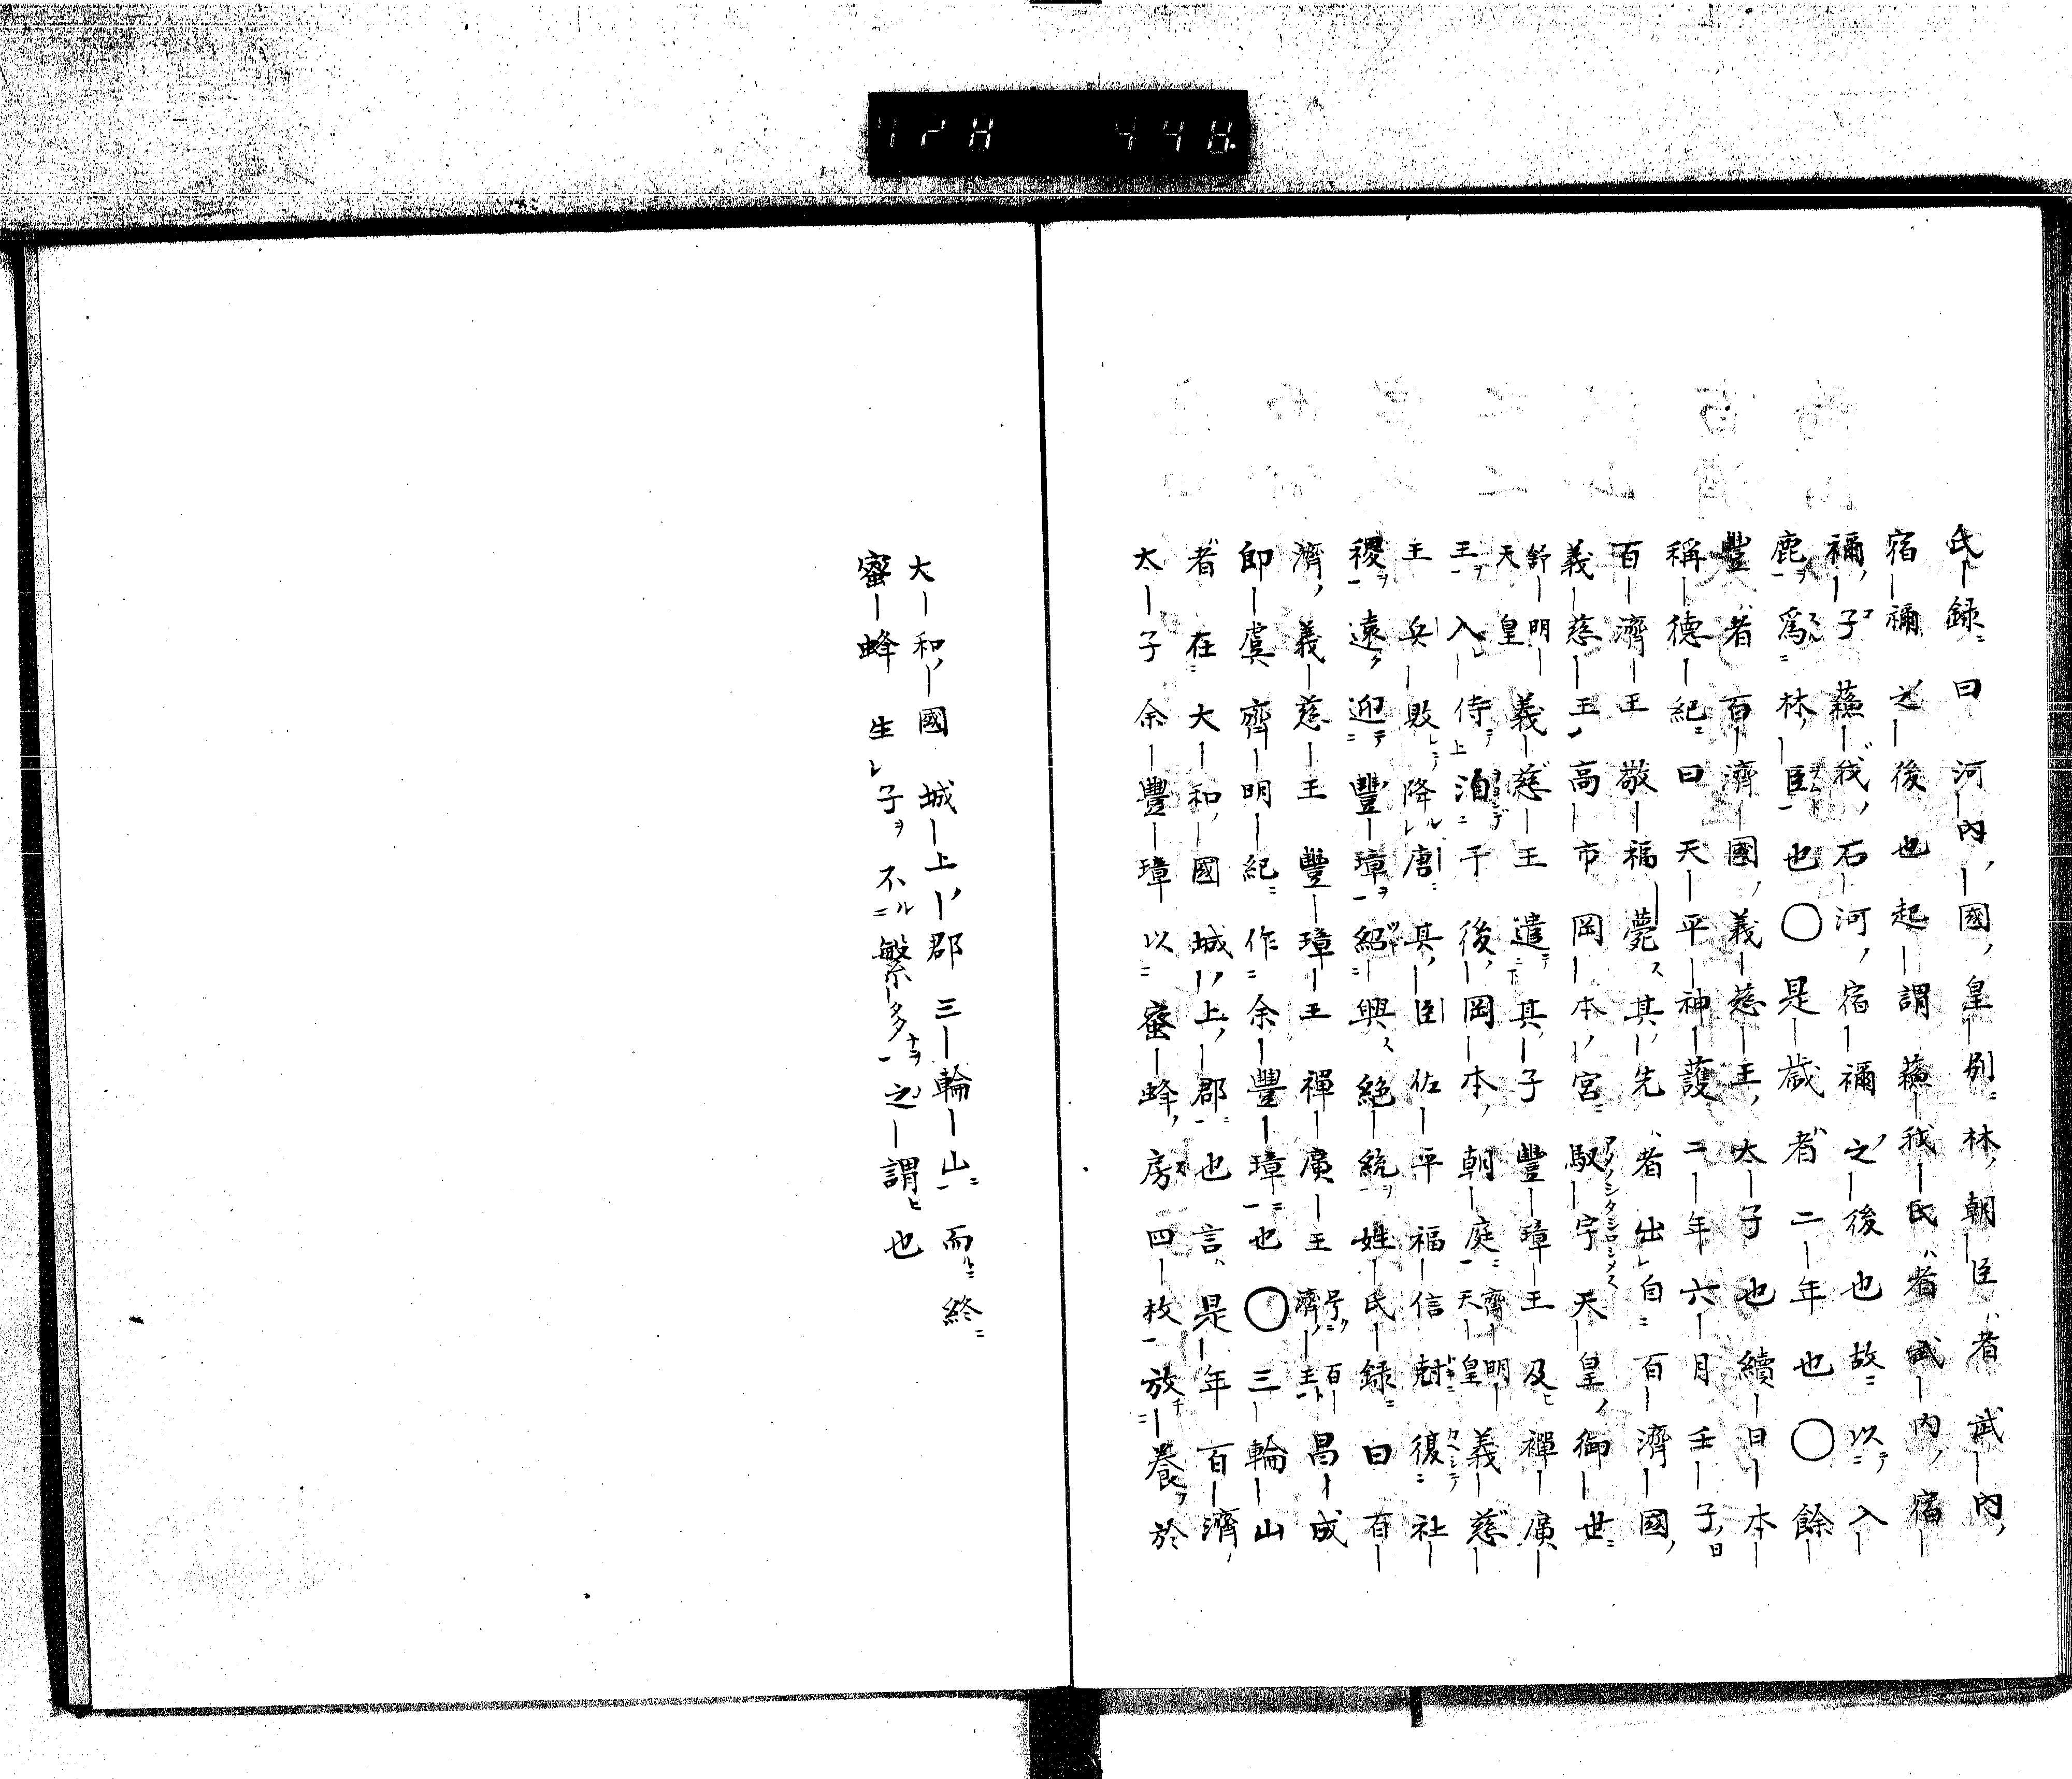 氏録曰河內國皇別林朝臣者武內
宿禰之後也起謂蘓我氏者武內宿
禰子蘓我石河宿禰之後也故以入
鹿爲林臣也〇是歳者二年也〇餘
豐者百濟國義慈王太子也續日本
稱德紀曰天平神護二年六月壬子日
百濟王敬福薨其先者出自百濟國
義慈王高市岡本宮馭宇天皇御世
舒明天皇義慈王遣其子豐璋王及禪廣
王入侍洎于後岡本朝庭齊明天皇義慈
王兵敗降唐其臣佐平福信尅復社
稷遠迎豐璋紹興絶統姓氏録曰百
濟義慈王豐璋王禪廣王号百濟王昌成
即虞齊明紀作余豐璋也〇三輪山
者在大和國城上郡也言是年百濟
太子余豐璋以蜜蜂房四枚放養於
大和國城上郡三輪山而終
蜜蜂生子不繁多之謂也